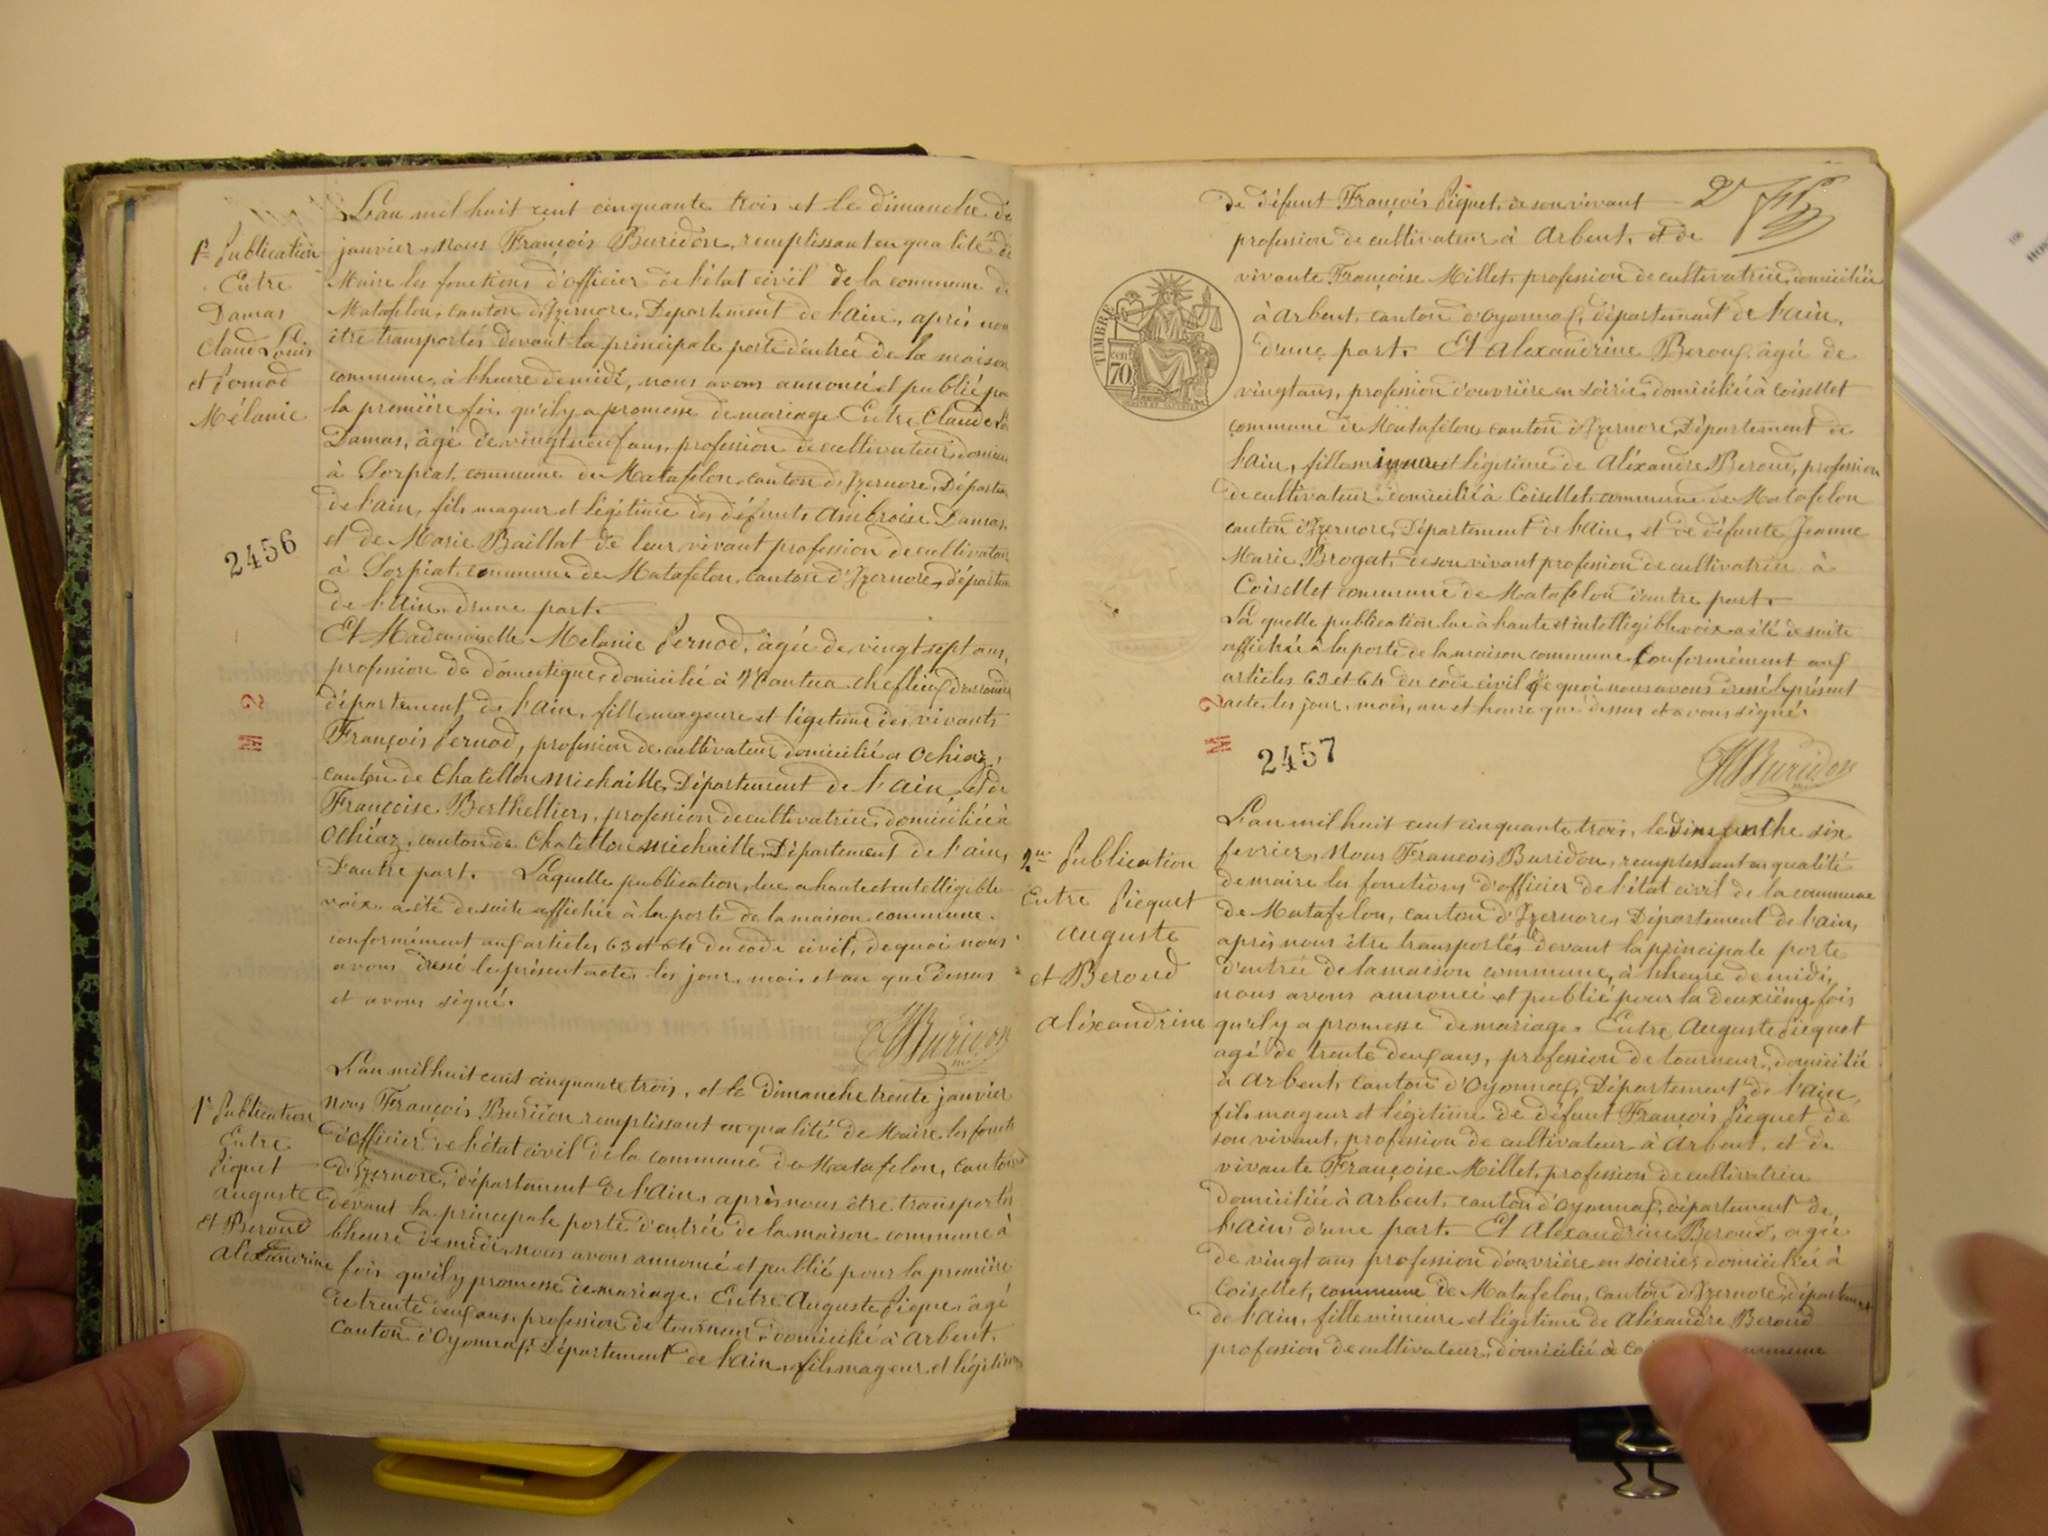 L'an mil huit cent cinquante trois et le dimanche
1re Publication
Entre
Damas
Claude Louis
et Pernod
Mélanie
janvier, nous François Buridon, remplissant en qualité de
Maire les fonctions d'officier de l'état civil de la commune de
Matafelon, canton d'Izernore, Département de l'ain, après nous
être transportés devant la principale porte d'entrée de la maison
commune, à l'heure de midi, nous avons annoncé et publié
la première fois qu'il y a promesse de mariage Entre Claude
Damas, âgé de vingt neuf ans, profession de cultivateur,
à Sorpiat, commune de Matafelon, canton d'Izernore,
de l'ain, fils mageur et légitime des défunts Ambroise Damas,
et de Marie Baillat de leur vivant profession de cultivateurs
à Sorpiat commune de Matafelon, canton d'Izernore,
de l'Ain, d'une part.
2456
Et Mademoiselle Mélanie Pernod, âgée de vingt sept ans,
profession de domestique, domicilié à Nantua chef lieu
département de l'ain, fille mageure et légitime des vivants
François Pernod, profession de cultivateur domicilié a Ochiaz,
canton de Chatillon michaille, Département de l'ain, et de
Françoise Berthellier, profession de cultivatrice, domiciliée à
Ochiaz, canton de Chatillon michaille, Département de l'ain,
D'autre part. Laquelle publication, lue a haute et intelligible
voix, a été de suite affichée à la porte de la maison commune.
conformément aux articles 63 et 64 du code civil, de quoi nous
avons dressé le présent acte, les jour, mois et an que dessus
et avons signé.
Buridon
M 2
L'an mil huit cent cinquante trois, et le dimanche trente janvier
1re Publication
Entre
Piquet
Auguste
et Beroud
Aléxandrine
nous François Buridon remplissant en qualité de Maire les
d'officier de l'état civil de la commune de Matafelon, canton
d'Izernore, département de l'Ain, après nous être transportés
devant la principale porte d'entrée de la maison commune à
l'heure de midi, nous avons annoncé et publié pour la première
fois qu'il y promesse de mariage. Entre Auguste Piquet, âgé
de trente deux ans, profession de tourneur, domicilié à Arbent,
canton d'Oyonnax, Département de l'ain, fils mageur et légitime
de défunt François Piquet, de son vivant
profession de cultivateur à Arbent, et de
vivante Françoise Millet, profession de cultivatrice, domiciliée
à Arbent, canton d'Oyonnax, département de l'ain,
d'une part. Et Alexandrine Beroud, âgée de
vingt ans, profession d'ouvrière en soirie, domiciliée à Coisellet
commune de Matafelon, canton d'Izernore, Département de
l'ain, fille mineure et légitime de Aléxandre Beroud, profession
de cultivateur domicilié à Coisellet, commune de Matafelon
canton d'Izernore, Département de l'Ain, et de défunte Jeanne
Marie Brogat, de son vivant profession de cultivatrice à
Coisellet commune de Matafelon d'autre part.
La quelle publication lue à haute et intelligible voix a été de suite
affichée à la porte de la maison commune, Conformément aux
articles 63 et 64 du code civil de quoi nous avons dressé le présent
acte, les jour, mois, an et heure que dessus et avons signé.
TIMBRE
70
Buridon
M 2
2457
L'an mil huit cent cinquante trois, le Dimanche six
2me Publication
Entre Picquet
Auguste
et Beroud
Aléxandrine
fevrier, Nous François Buridon, remplissant en qualité
de maire les fonctions d'officier de l'état civil de la commune
de Matafelon, canton d'Izernore, Département de l'ain,
après nous être transportés devant la principale porte
d'entrée de la maison commune, à l'heure de midi,
nous avons annoncé et publié pour la deuxième fois
qu'il y a promesse de mariage. Entre Auguste Picquet
agé de trente deux ans, profession de tourneur, domicilié
à Arbent, canton d'Oyonnax, Département de l'Ain,
fils mageur et légitime de défunt François Picquet de
son vivant, profession de cultivateur à Arbent, et de
vivante Françoise Millet, profession de cultivatrice
domiciliée à Arbent, canton d'Oyonnax, département de
l'ain, d'une part. Et Alexandrine Beroud, agée
de vingt ans profession d'ouvrière en soierie, domiciliée à
Coisellet, commune de Matafelon, canton d'Izernore, département
de l'ain, fille mineure et légitime de Aléxandre Beroud
profession de cultivateur, domicilié à